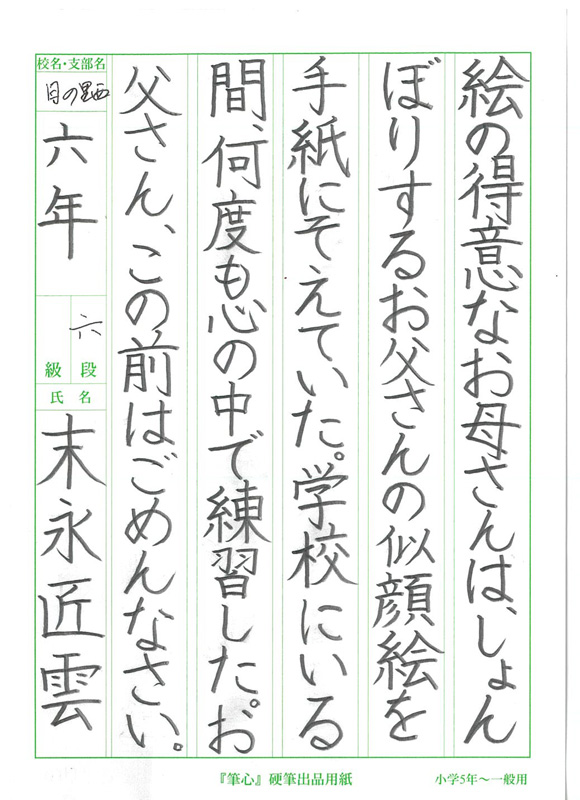 絵の得意なお母さんは、しょん
ぼりするお父さんの似顔絵を
手紙にそえていた。学校にいる
間、何度も心の中で練習した。お
父さん、この前はごめんなさい。
校名・支部名
目の里西
六年
六
級 段
氏名
末永匠雲
『筆心』硬筆出品用紙
小学5年～一般用